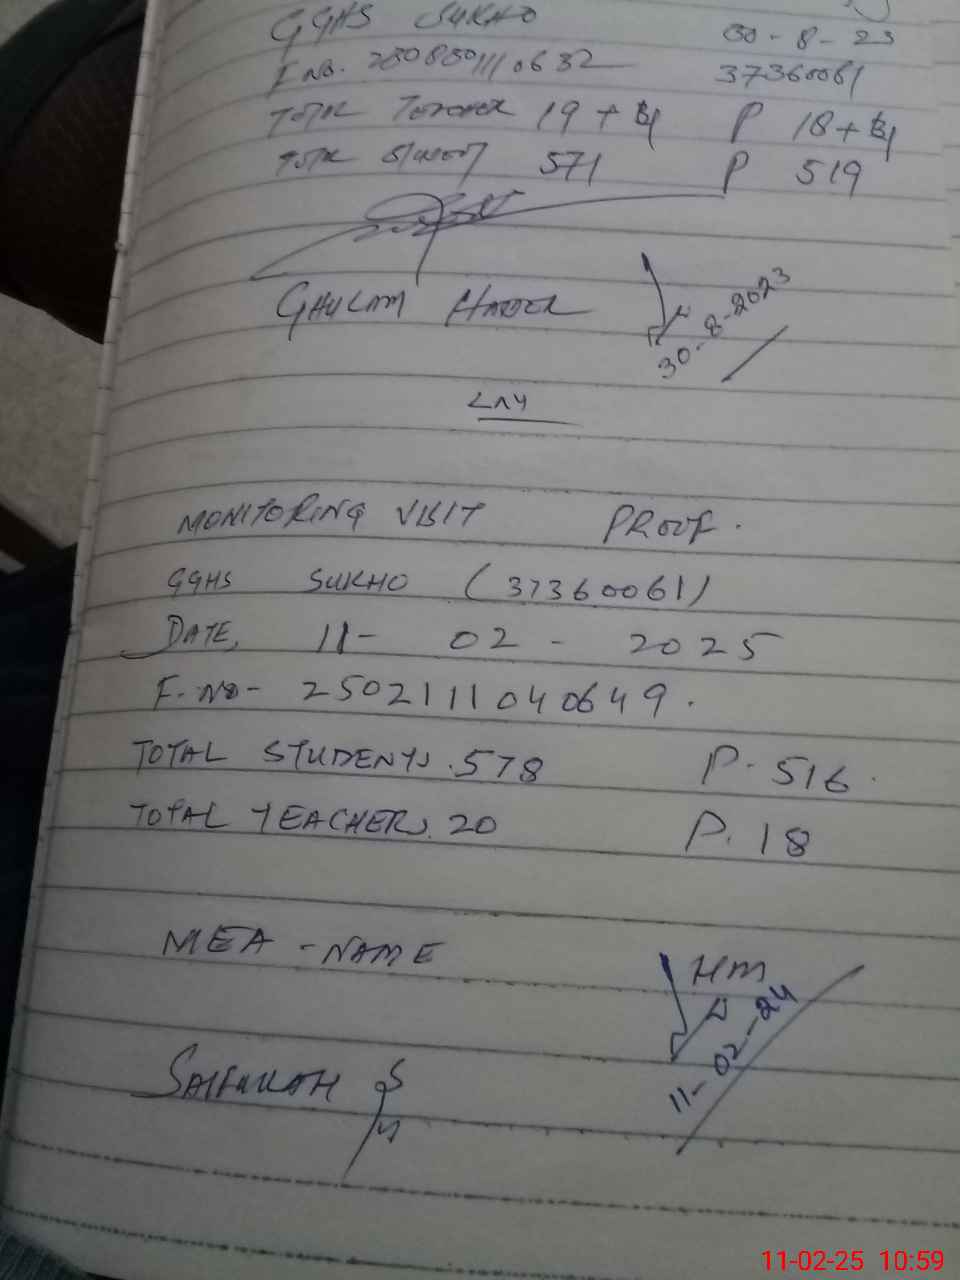 GGHS SUKHO 30-8-23
F NO. 2308301110632 37360061
P 18+
571 P 519
GHULAM HAIDER
30-8-2023
MONITORING VISIT PROOF.
GGHS SUKHO (37360061)
DATE, 11- 02 - 2025
F.No- 2502111040649.
TOTAL STUDENTS. 578 P. 516.
TOTAL TEACHERS. 20 P. 18
MEA - NAME
HM
11-02-24
SAIFULLAH
11-02-25 10:59